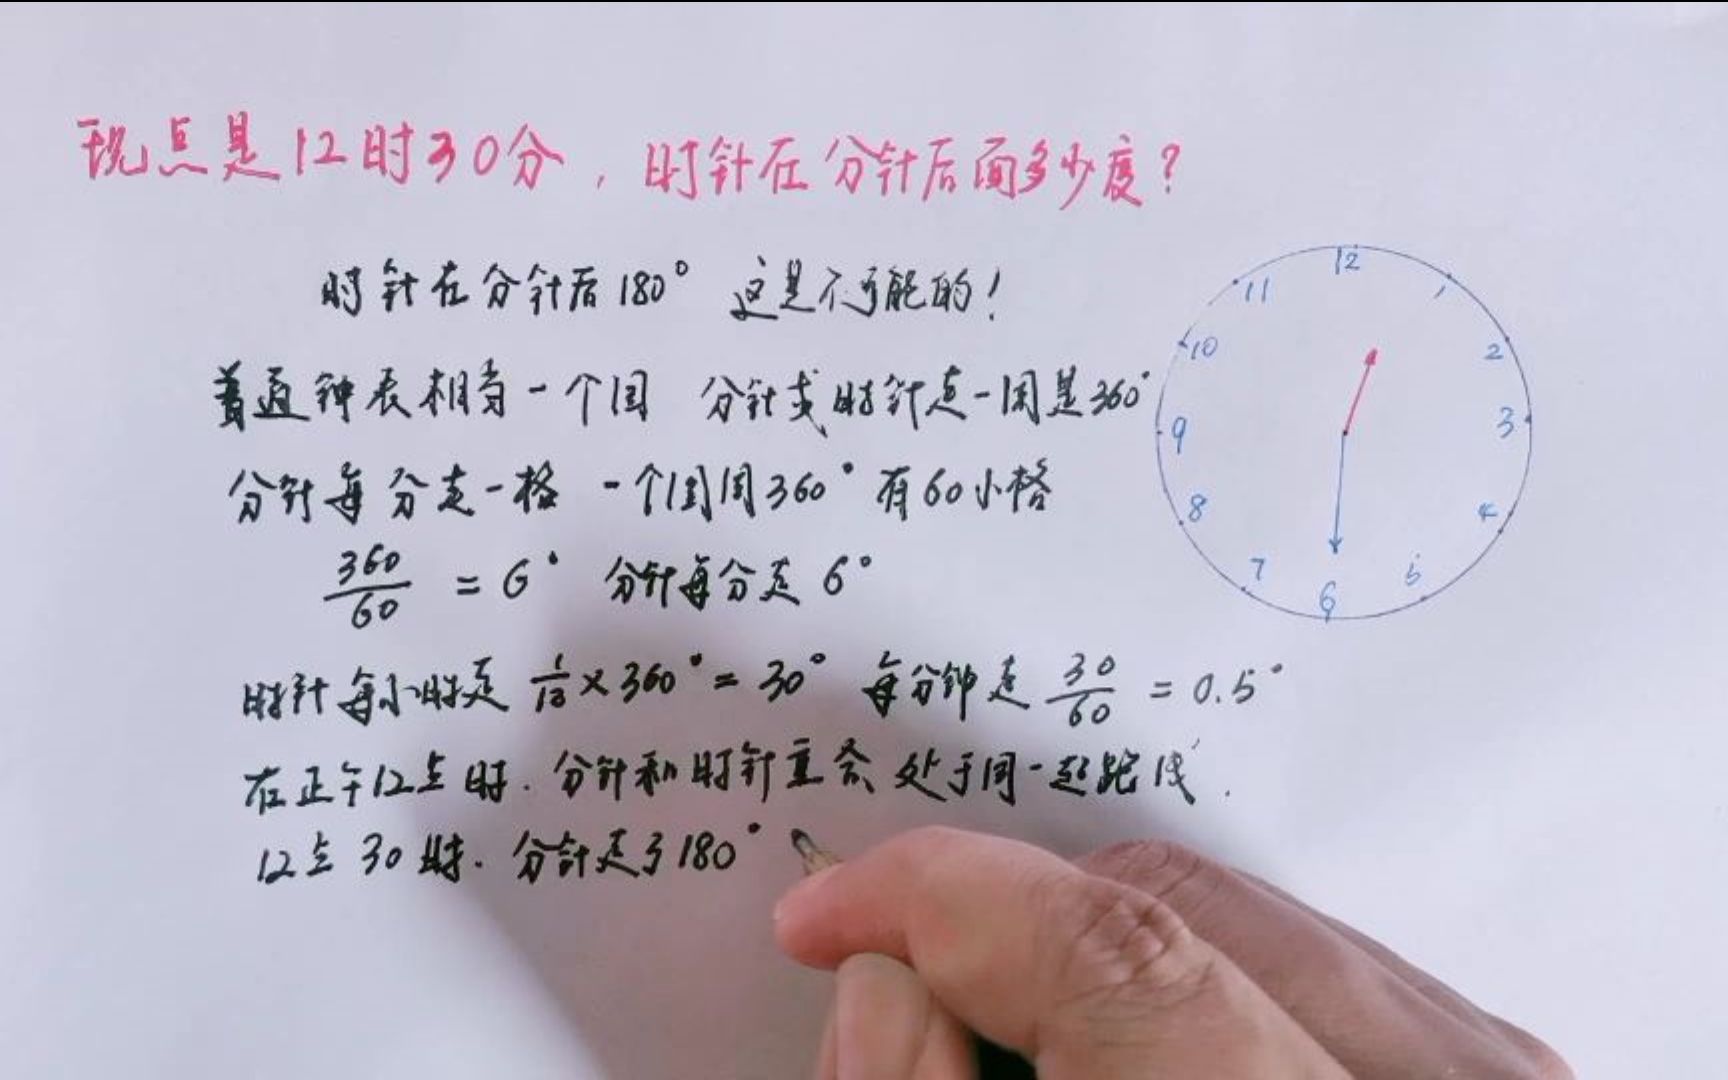 现点是12时30分，时针在分针后面多少度？
时针在分针后180° 这是不可能的！
普通钟表相当一个圆 分针或时针走一周是360°
分针每分走一格 一个圆周360°有60小格
360/60 = 6° 分针每分走 6°
时针每小时走 1/12 × 360° = 30° 每分钟走 30/60 = 0.5°
在正午12点时. 分针和时针重合 处于同一起跑线.
12点30时. 分针走了180°
12
1
2
3
4
5
6
7
8
9
10
11